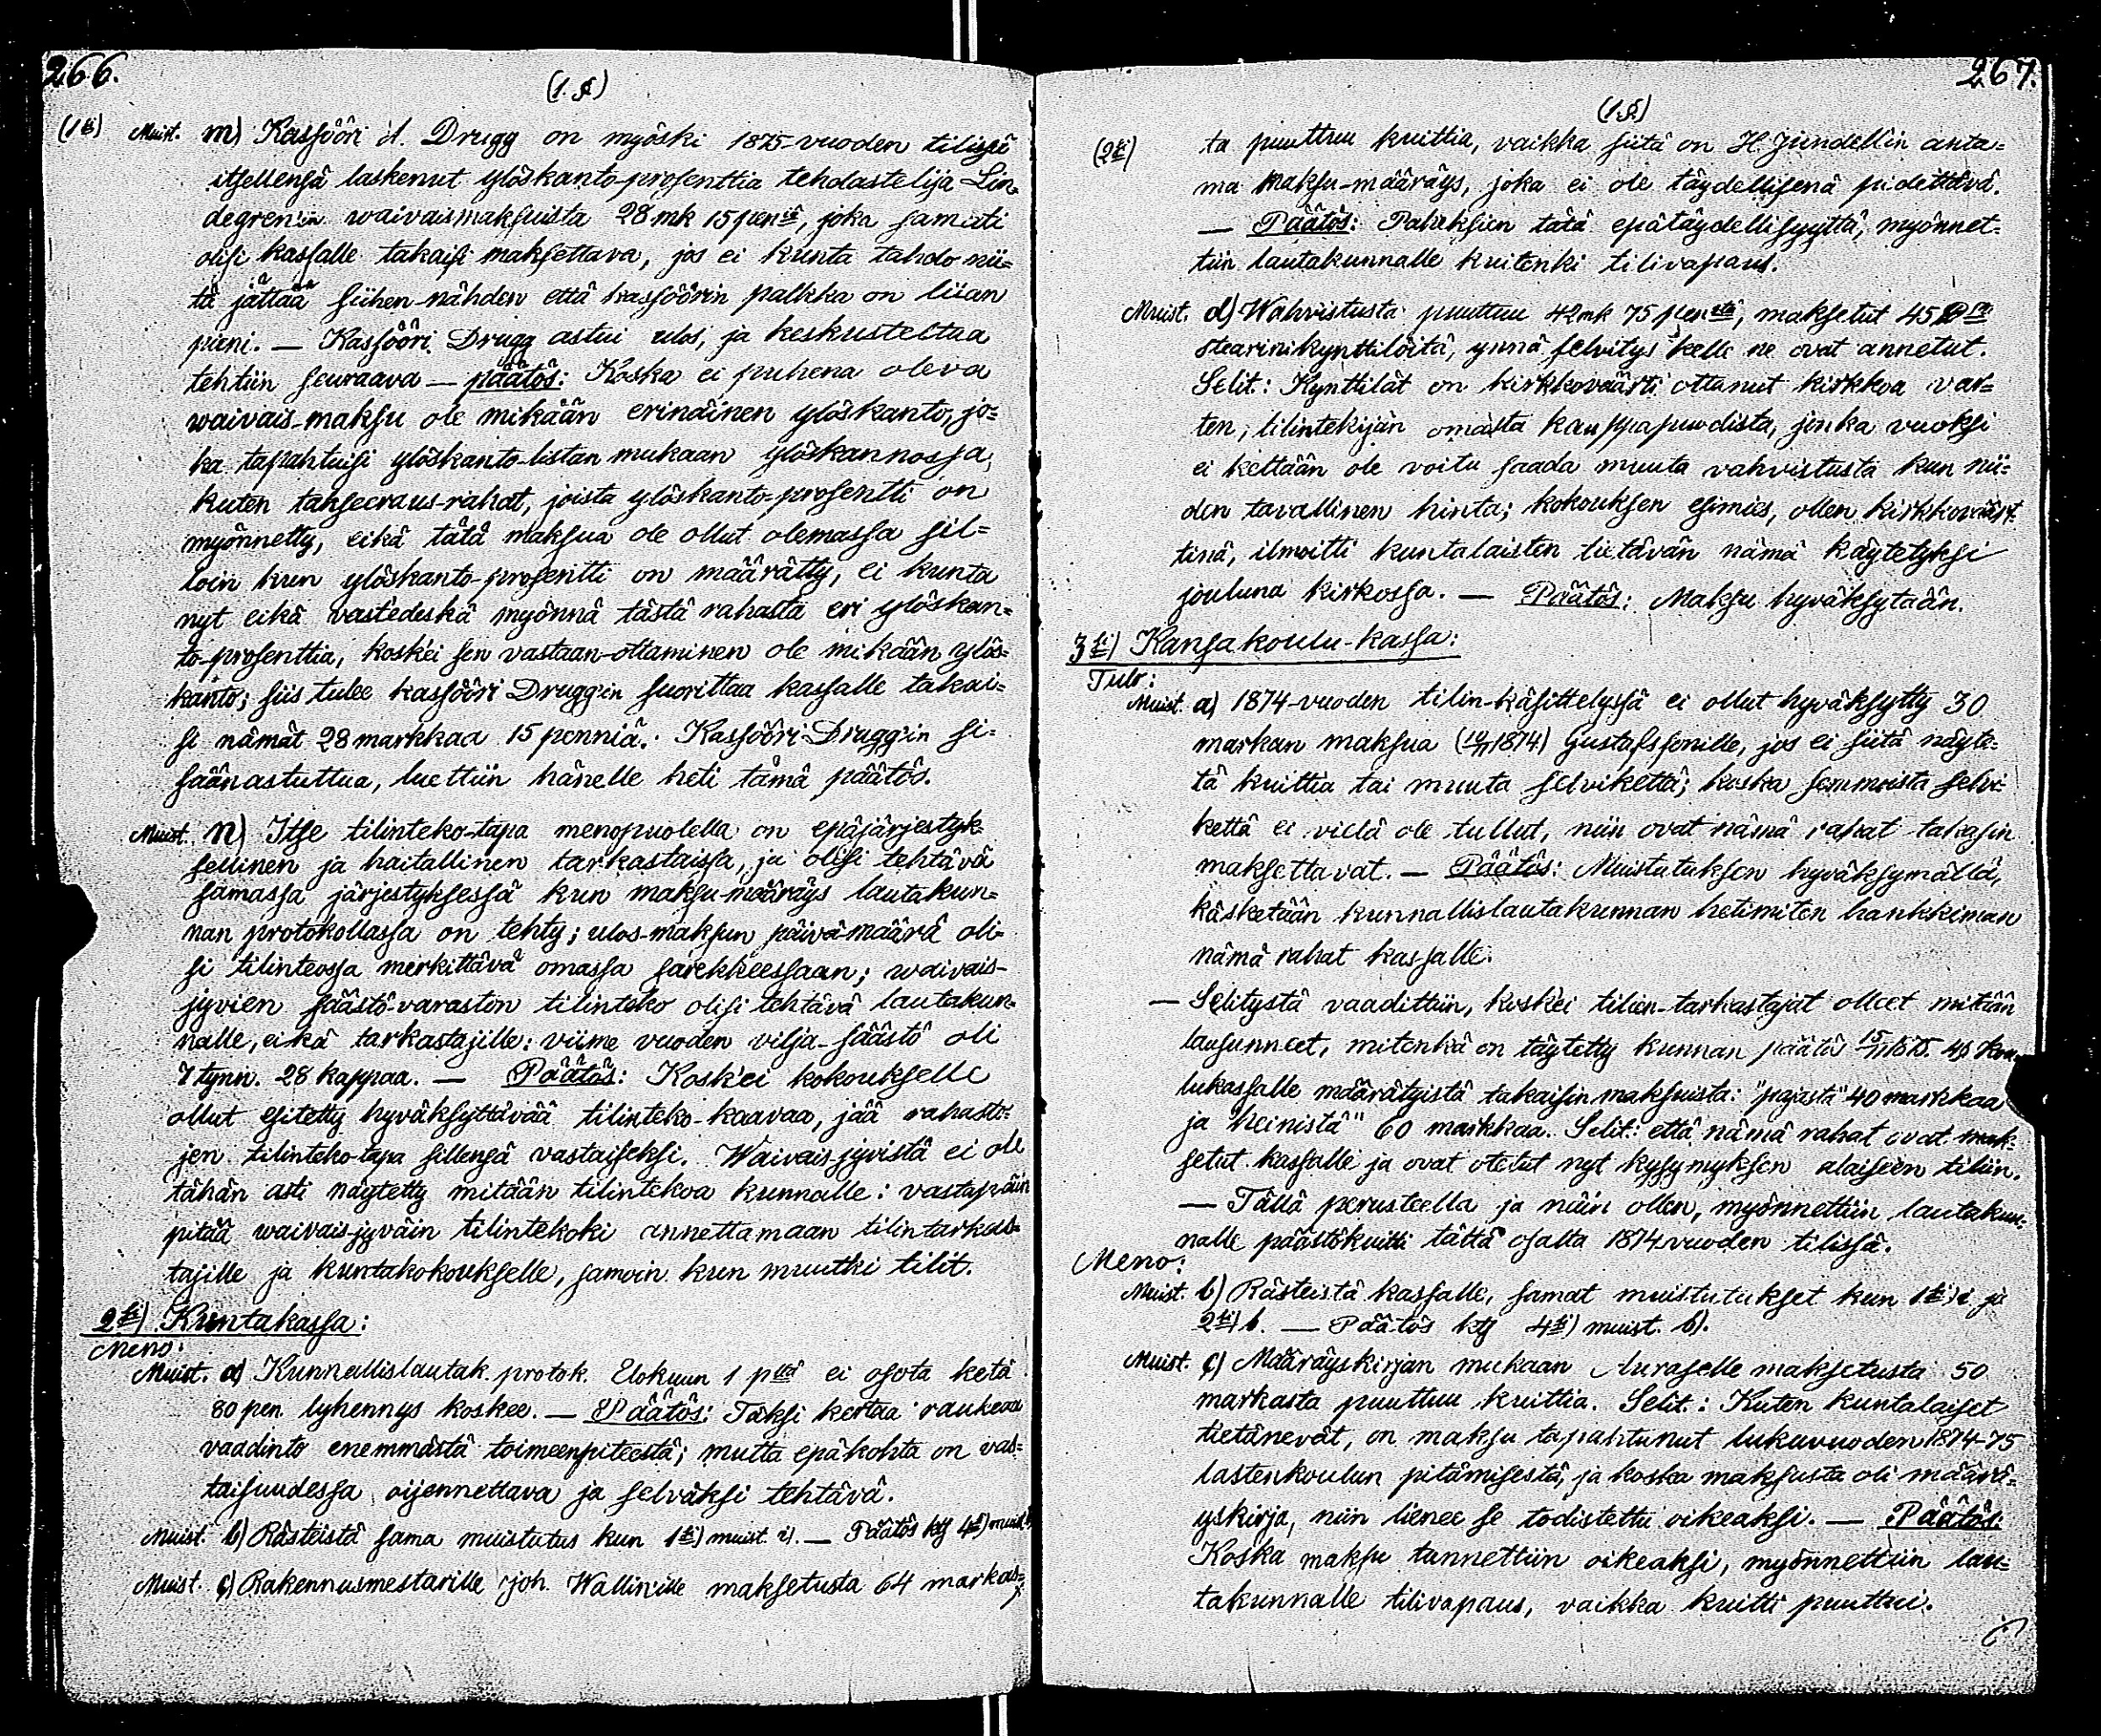 266.
(1.§)
(1ksi) Muist. m) Kassööri A. Drugg on myöski 1875-vuoden tilissä
itsellensä laskenut ylöskanto-prosenttia tehdastelija Lin-
degren'in waivaismaksuista 28 mk 15 pen:iä, joka samati
olisi kassalle takaisi maksettava, jos ei kunta tahdo nii-
tä jättää siihen nähden että kassöörin palkka on liian
pieni. — Kassööri Drugg astui ulos, ja keskusteltua
tehtiin seuraava — päätös: Koska ei puhena oleva
waivais-maksu ole mikään erinäinen ylöskanto, jo-
ka tapahtuisi ylöskanto-listan mukaan ylöskannossa,
kuten takseeraus-rahat, joista ylöskanto-prosentti on
myönnetty, eikä tätä maksua ole ollut olemassa sil-
loin kun ylöskanto-prosentti on määrätty, ei kunta
nyt eikä vastedeskä myönnä tästä rahasta eri ylöskan-
to-prosenttia, kosk'ei sen vastaan-ottaminen ole mikään ylös-
kanto; siis tulee kassööri Drugg'in suorittaa kassalle takai-
si nämät 28 markkaa 15 penniä. Kassööri Drugg'in si-
säänastuttua, luettiin hänelle heti tämä päätös.
Muist. n) Itse tilinteko-tapa menopuolella on epäjärjestyk-
sellinen ja haitallinen tarkastaissa, ja olisi tehtävä
samassa järjestyksessä kun maksu-määräys lautakun-
nan protokollassa on tehty; ulos-maksun päivä-määrä oli-
si tilinteossa merkittävä omassa sarekkeessaan; waivais-
jyvien säästö-varaston tilinteko olisi tehtävä lautakun-
nalle, eikä tarkastajille: viime vuoden vilja-säästö oli
7 tynn. 28 kappaa. — Päätös: Kosk'ei kokoukselle
ollut esitetty hyväksyttävää tilinteko-kaavaa, jää rahasto-
jen tilinteko-tapa sillensä vastaiseksi. Waivais-jyvistä ei ole
tähän asti näytetty mitään tilintekoa kunnalle: vastapäin
pitää waivais-jyväin tilintekoki annettamaan tilintarkas-
tajille ja kuntakokoukselle, samoin kun muutki tilit.
2ksi) Kuntakassa:
Meno:
Muist. a) Kunnallislautak. protok. Elokuun 1 p:ltä ei osota ketä
80 pen. lyhennys koskee. — Päätös: Täksi kertaa raukeaa
vaadinto enemmästä toimeenpiteestä; mutta epäkohta on vas-
taisuudessa oijennettava ja selväksi tehtävä.
Muist. b) Rästeistä sama muistutus kun 1ksi) muist. i). — Päätös ktg 4ksi) muist. b)
Muist. c) Rakennusmestarille Joh. Wallin'ille maksetusta 64 markas-
267.
(1.§)
(2ksi) ta puuttuu kuittia, vaikka siitä on H. Jundell'in anta-
ma maksu-määräys, joka ei ole täydellisenä pidettävä.
— Päätös: Paheksien tätä epätäydellisyyttä, myönnet-
tiin lautakunnalle kuitenki tilivapaus.
Muist. d) Wahvistusta puuttuu 42 mk 75 pen:stä, maksetut 45
stearinikynttilöitä, ynnä selvitys kelle ne ovat annetut.
Selit.: Kynttilät on kirkkoväärti ottanut kirkkoa var-
ten, tilintekijän omasta kauppapuodista, jonka vuoksi
ei kettään ole voitu saada muuta vahvistusta kun nii-
den tavallinen hinta; kokouksen esimies, ollen kirkkoväärt-
tinä, ilmoitti kuntalaisten tietävän nämä käytetyksi
jouluna kirkossa. — Päätös: Maksu hyväksytään.
3ksi) Kansakoulu-kassa:
Tulo:
Muist. a) 1874-vuoden tilin-käsittelyssä ei ollut hyväksytty 30
markan maksua (10/11 1874) Gustafssonille, jos ei siitä näyte-
tä kuittia tai muuta selvikettä; koska semmoista selvi-
kettä ei vielä ole tullut, niin ovat nämä rahat takasin
maksettavat. — Päätös: Muistutuksen hyväksymällä,
käsketään kunnallislautakunnan hetimiten hankkiman
nämä rahat kassalle.
— Selitystä vaadittiin, kosk'ei tilien-tarkastajat olleet mitään
lausunneet, mitenkä on täytetty kunnan päätös 15/11 1875. 4§ kou-
lukassalle määrätyistä takaisin maksuista: "pajasta" 40 markkaa
ja "heinistä" 60 markkaa. Selit.: että nämä rahat ovat mak-
setut kassalle ja ovat otetut nyt kysymyksen alaiseen tiliin.
— Tällä perusteella ja näin ollen, myönnettiin lautakun-
nalle päästökuitti tältä osalta 1874 vuoden tilissä.
Meno:
Muist. b) Rästeistä kassalle, samat muistutukset kun 1ksi) i ja
2ksi) b. — Päätös ktg 4ksi) muist. b).
Muist. c) Määräyskirjan mukaan Auraselle maksetusta 50
markasta puuttuu kuittia. Selit.: Kuten kuntalaiset
tietänevät, on maksu tapahtunut lukuvuoden 1874-75
lastenkoulun pitämisestä, ja koska maksusta oli määrä-
yskirja, niin lienee se todistettu oikeaksi. — Päätös:
Koska maksu tunnettiin oikeaksi, myönnettiin lau-
takunnalle tilivapaus, vaikka kuitti puuttui.